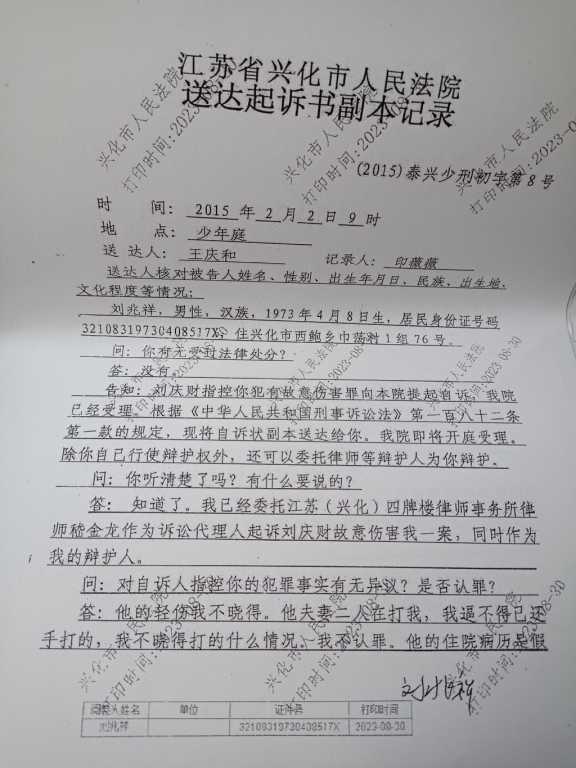 江苏省兴化市人民法院
送达起诉书副本记录
(2015)泰兴少刑初字第8号
时 间: 2015 年 2 月 2 日 9 时
地 点: 少年庭
送 达 人: 王庆和 记录人: 印薇薇
送达人核对被告人姓名、性别、出生年月日、民族、出生地、
文化程度等情况:
刘兆祥，男性，汉族，1973年4月8日生，居民身份证号码
32108319730408517X，住兴化市西鲍乡巾荡村1组76号。
问: 你有无受过法律处分?
答: 没有。
告知: 刘庆财指控你犯有故意伤害罪向本院提起自诉，我院
已经受理。根据《中华人民共和国刑事诉讼法》第一百八十二条
第一款的规定，现将自诉状副本送达给你。我院即将开庭受理。
除你自己行使辩护权外，还可以委托律师等辩护人为你辩护。
问: 你听清楚了吗? 有什么要说的?
答: 知道了。我已经委托江苏（兴化）四牌楼律师事务所律
师嵇金龙作为诉讼代理人起诉刘庆财故意伤害我一案，同时作为
我的辩护人。
问: 对自诉人指控你的犯罪事实有无异议? 是否认罪?
答: 他的轻伤我不晓得。他夫妻二人在打我，我逼不得已还
手打的，我不晓得打的什么情况。我不认罪。他的住院病历是假
刘兆祥
调卷人姓名 单位 证件号 打印时间
刘兆祥 32108319730408517X 2023-08-30
兴化市人民法院
打印时间:2023-08-30